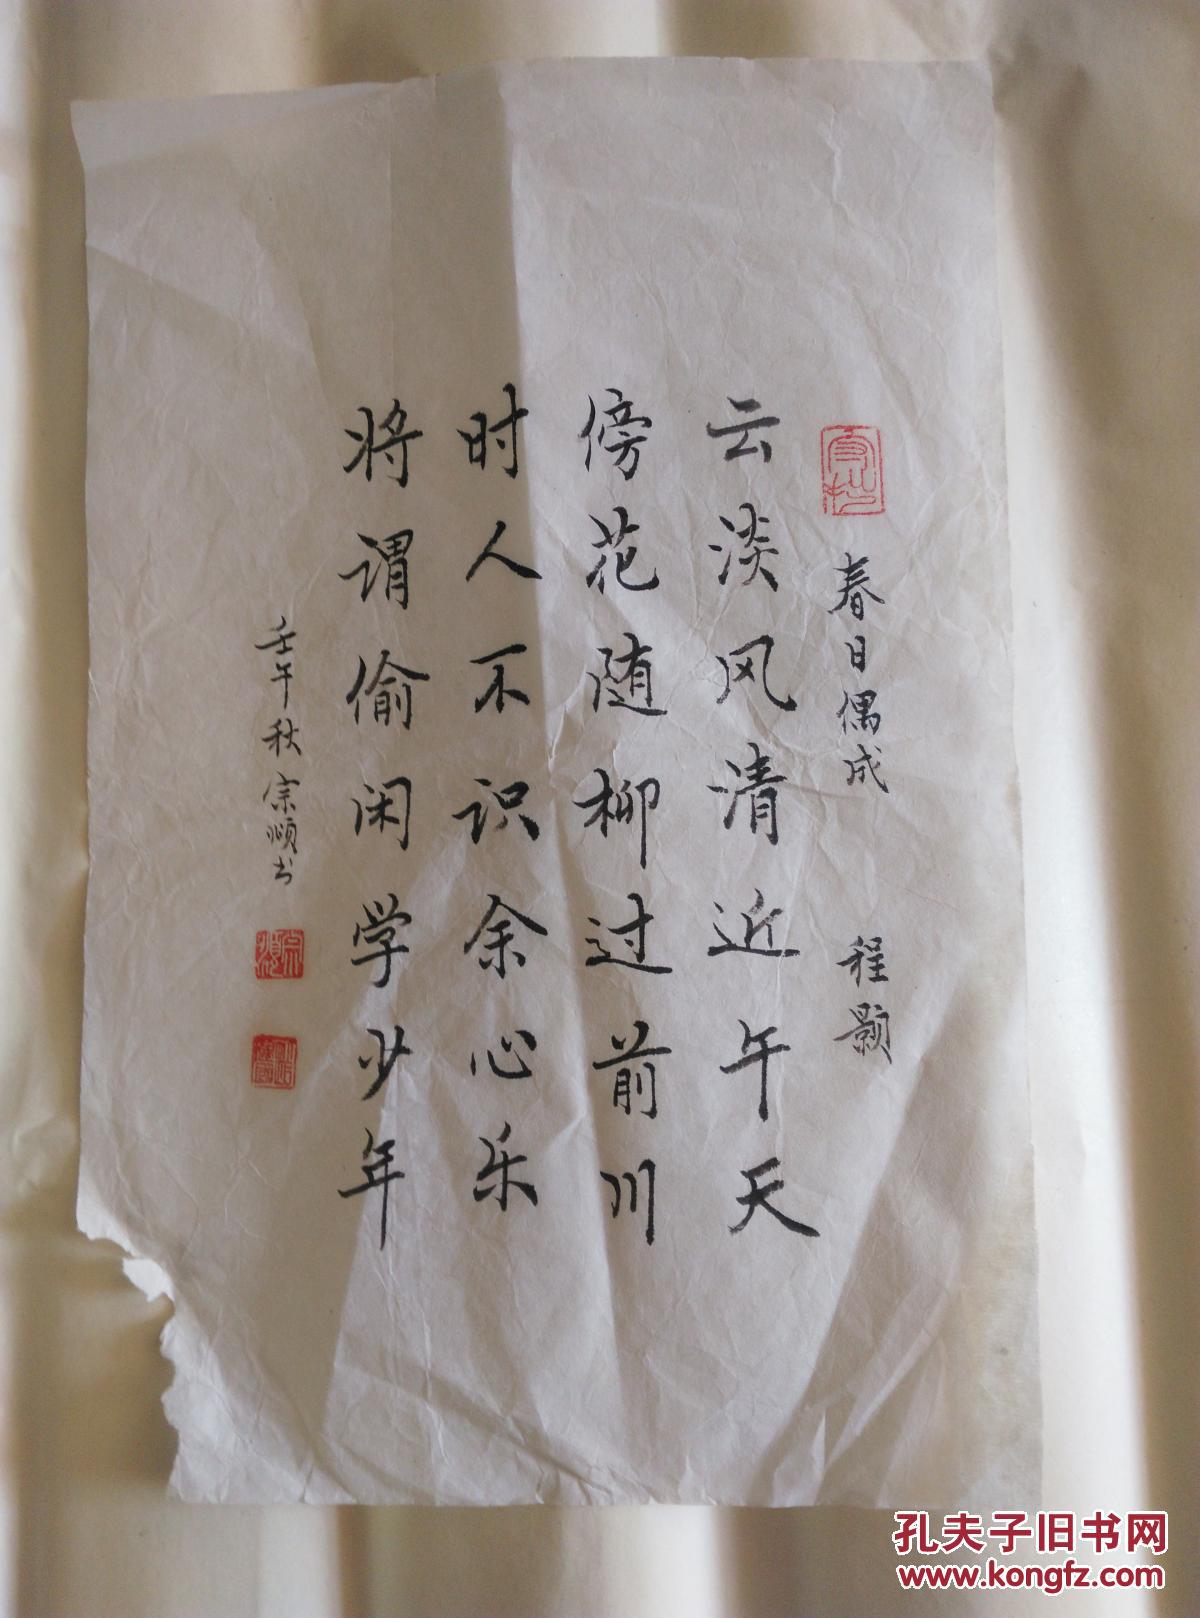 春日偶成 程颢
云淡风清近午天
傍花随柳过前川
时人不识余心乐
将谓偷闲学少年
壬午秋宗顺书
宗顺
孔夫子旧书网
www.kongfz.com